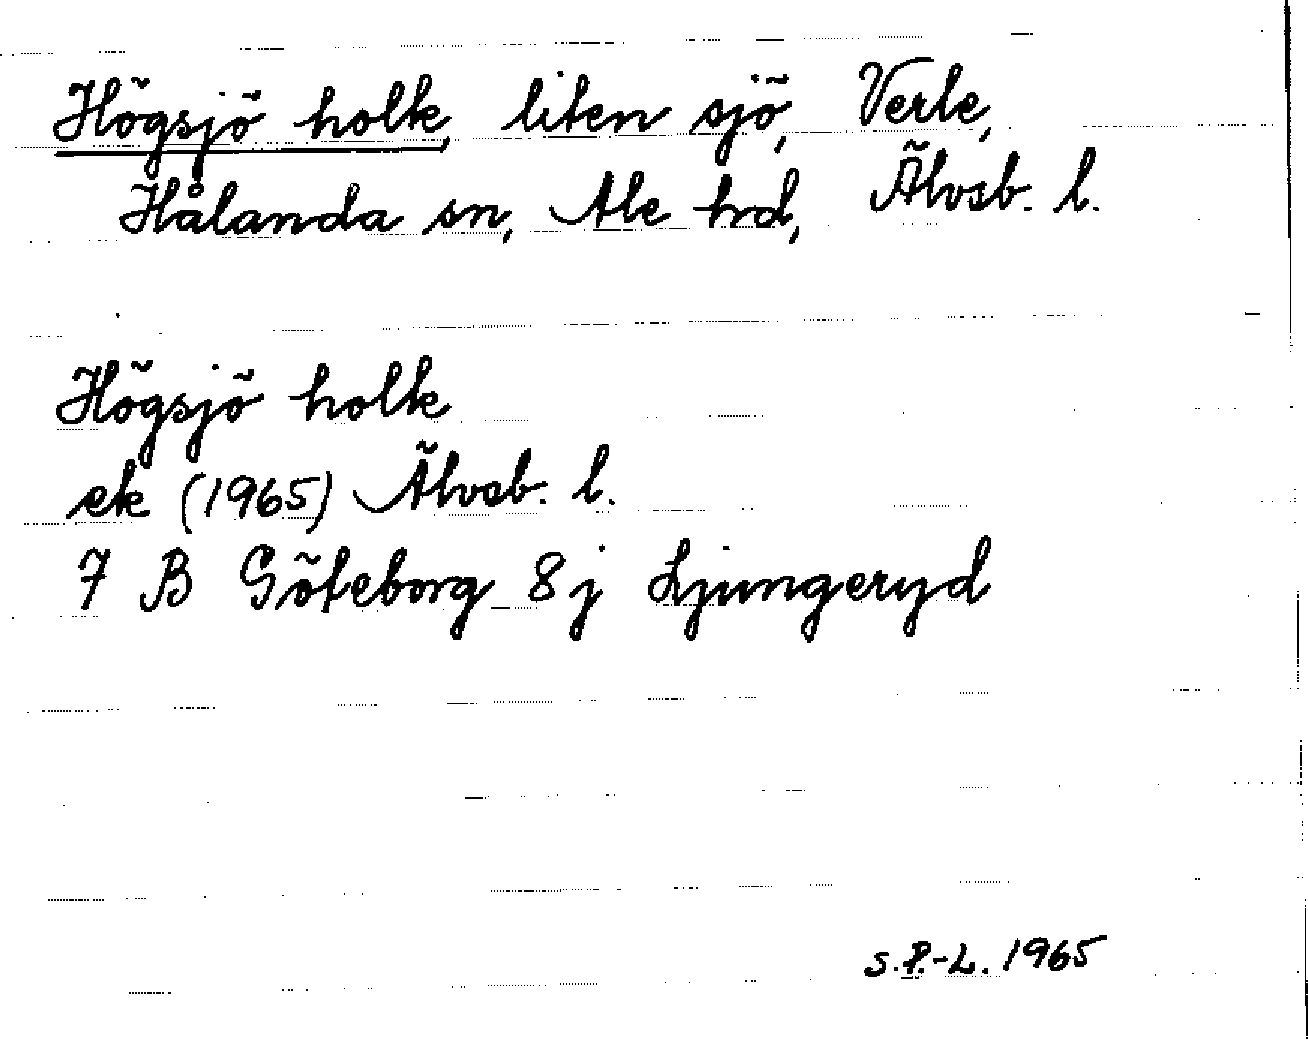 Högsjö holk, liten sjö, Verle,
Hålanda sn, Ale hrd, Älvsb. l.
Högsjö holk
ek (1965) Älvsb. l.
7 B Göteborg 8 j Ljungeryd
S.P.-L. 1965